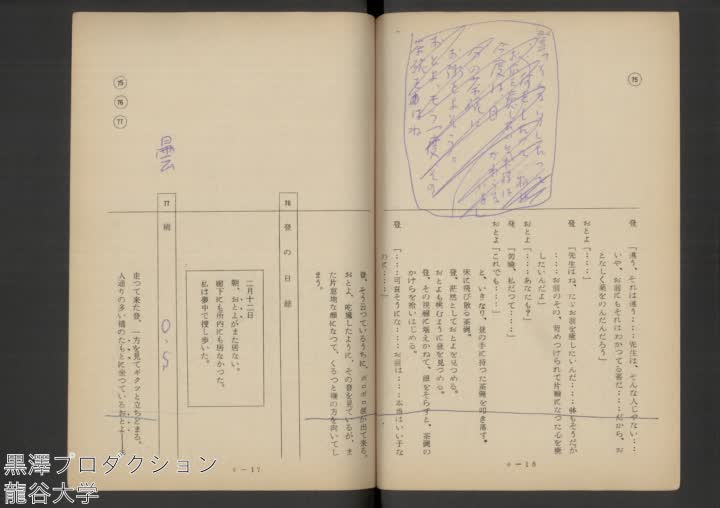 75
登 「違う、それは違う‥‥先生は、そんな人じゃない‥‥
いや、お前にもそれはわかつてる筈だ‥‥だから、お
となしく薬をのんだんだろう」
おとよ「‥‥‥」
登 「先生はね、たゞお前を癒したいんだ‥‥体もそうだが
‥‥お前のその、苛めつけられて片輪になつた心を癒
したいんだよ」
おとよ「‥‥あなたも?」
登 「勿論、私だつて‥‥」
おとよ「これでも‥‥」
と、いきなり、登の手に持つた茶碗を叩き落す。
床に飛び散る茶碗。
登、茫然としておとよを見つめる。
おとよも挑むように登を見つめる。
登、その視線に堪えかねて、眼をそらすと、茶碗の
かけらを拾いはじめる。
登 「‥‥可哀そうにな‥‥お前は‥‥本当はいい子な
のに‥‥」
オー16
登、そう云つているうちに、ボロボロ涙が出て来る。
おとよ、吃驚したように、その登を見ているが、ま
た片意地な顔になつて、くるつと壁の方を向いてし
まう。
76 登の日録
二月十二日
朝、おとよがまた居ない。
廊下にも所内にも居なかつた。
私は夢中で捜し歩いた。
77 橋
走つて来た登、一方を見てギクッと立ちどまる。
人通りの多い橋のたもとに坐つているおとよ―
75
76
77
曇
オー17
黒澤プロダクション
龍谷大学